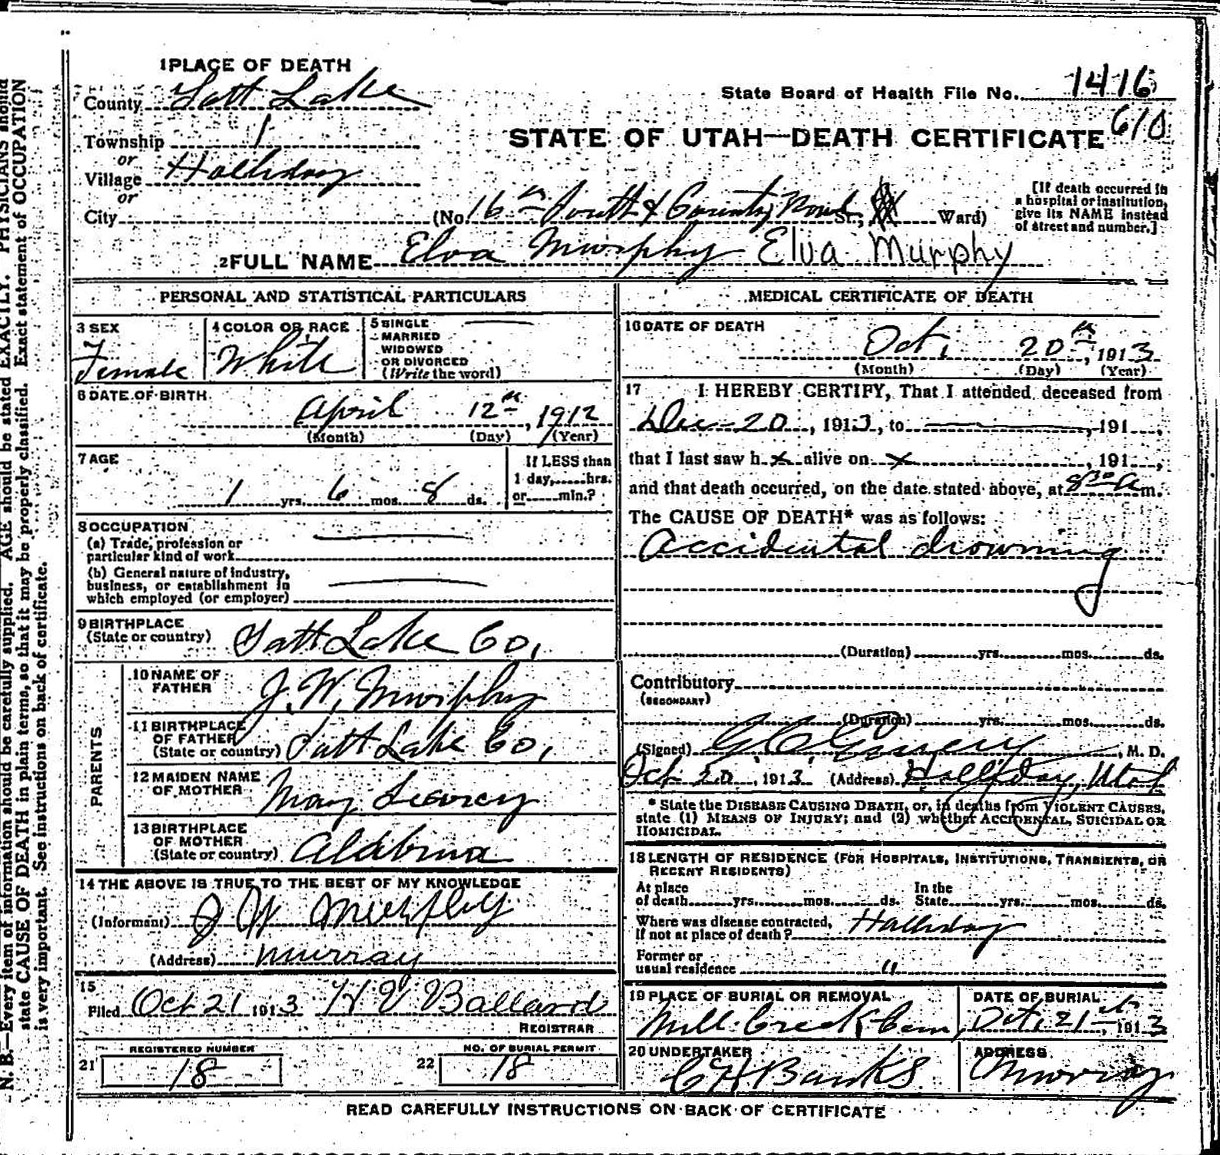 1 PLACE OF DEATH
County Salt Lake
State Board of Health File No. 1416
610
Township 1
or
Village Halliday
or
STATE OF UTAH—DEATH CERTIFICATE
City (No. 16th South & County Road St., Ward)
[If death occurred in a hospital or institution, give its NAME instead of street and number.]
2 FULL NAME Elva Murphy Elva Murphy
PERSONAL AND STATISTICAL PARTICULARS
3 SEX
Female
4 COLOR OR RACE
White
5 SINGLE
MARRIED
WIDOWED
OR DIVORCED
(Write the word)
6 DATE OF BIRTH
April 12th, 1912
(Month) (Day) (Year)
7 AGE
1 yrs. 6 mos. 8 ds.
If LESS than
1 day, hrs.
or min.?
8 OCCUPATION
(a) Trade, profession or
particular kind of work
(b) General nature of industry,
business, or establishment in
which employed (or employer)
9 BIRTHPLACE
(State or country) Salt Lake Co.
PARENTS
10 NAME OF
FATHER J. W. Murphy
11 BIRTHPLACE
OF FATHER
(State or country) Salt Lake Co.
12 MAIDEN NAME
OF MOTHER May
13 BIRTHPLACE
OF MOTHER
(State or country)
14 THE ABOVE IS TRUE TO THE BEST OF MY KNOWLEDGE
(Informant) J W Murphy
(Address) Murray
15
Filed Oct 21 1913 H V Ballard
REGISTRAR
21 REGISTERED NUMBER
18
22 NO. OF BURIAL PERMIT
18
MEDICAL CERTIFICATE OF DEATH
16 DATE OF DEATH
Oct. 20th, 1913
(Month) (Day) (Year)
17 I HEREBY CERTIFY, That I attended deceased from
20, 1913, to , 191 ,
that I last saw h x alive on x , 191 ,
and that death occurred, on the date stated above, at 8 30 A m.
The CAUSE OF DEATH* was as follows:
Accidental drowning
(Duration) yrs. mos. ds.
Contributory
(SECONDARY)
(Duration) yrs. mos. ds.
(Signed) , M. D.
Oct 20, 1913 (Address) Halliday, Utah
* State the DISEASE CAUSING DEATH, or, in deaths from VIOLENT CAUSES,
state (1) MEANS OF INJURY; and (2) whether ACCIDENTAL, SUICIDAL OR
HOMICIDAL.
18 LENGTH OF RESIDENCE (FOR HOSPITALS, INSTITUTIONS, TRANSIENTS, OR
RECENT RESIDENTS)
At place
of death yrs. mos. ds. In the
State yrs. mos. ds.
Where was disease contracted,
if not at place of death? Halliday
Former or
usual residence "
19 PLACE OF BURIAL OR REMOVAL
Mill Creek Cem.
DATE OF BURIAL
Oct. 21st, 1913
20 UNDERTAKER
Banks
ADDRESS
Murray
READ CAREFULLY INSTRUCTIONS ON BACK OF CERTIFICATE
N. B.—Every item of information should be carefully supplied. AGE should be stated EXACTLY. PHYSICIANS should
state CAUSE OF DEATH in plain terms, so that it may be properly classified. Exact statement of OCCUPATION
is very important. See instructions on back of certificate.